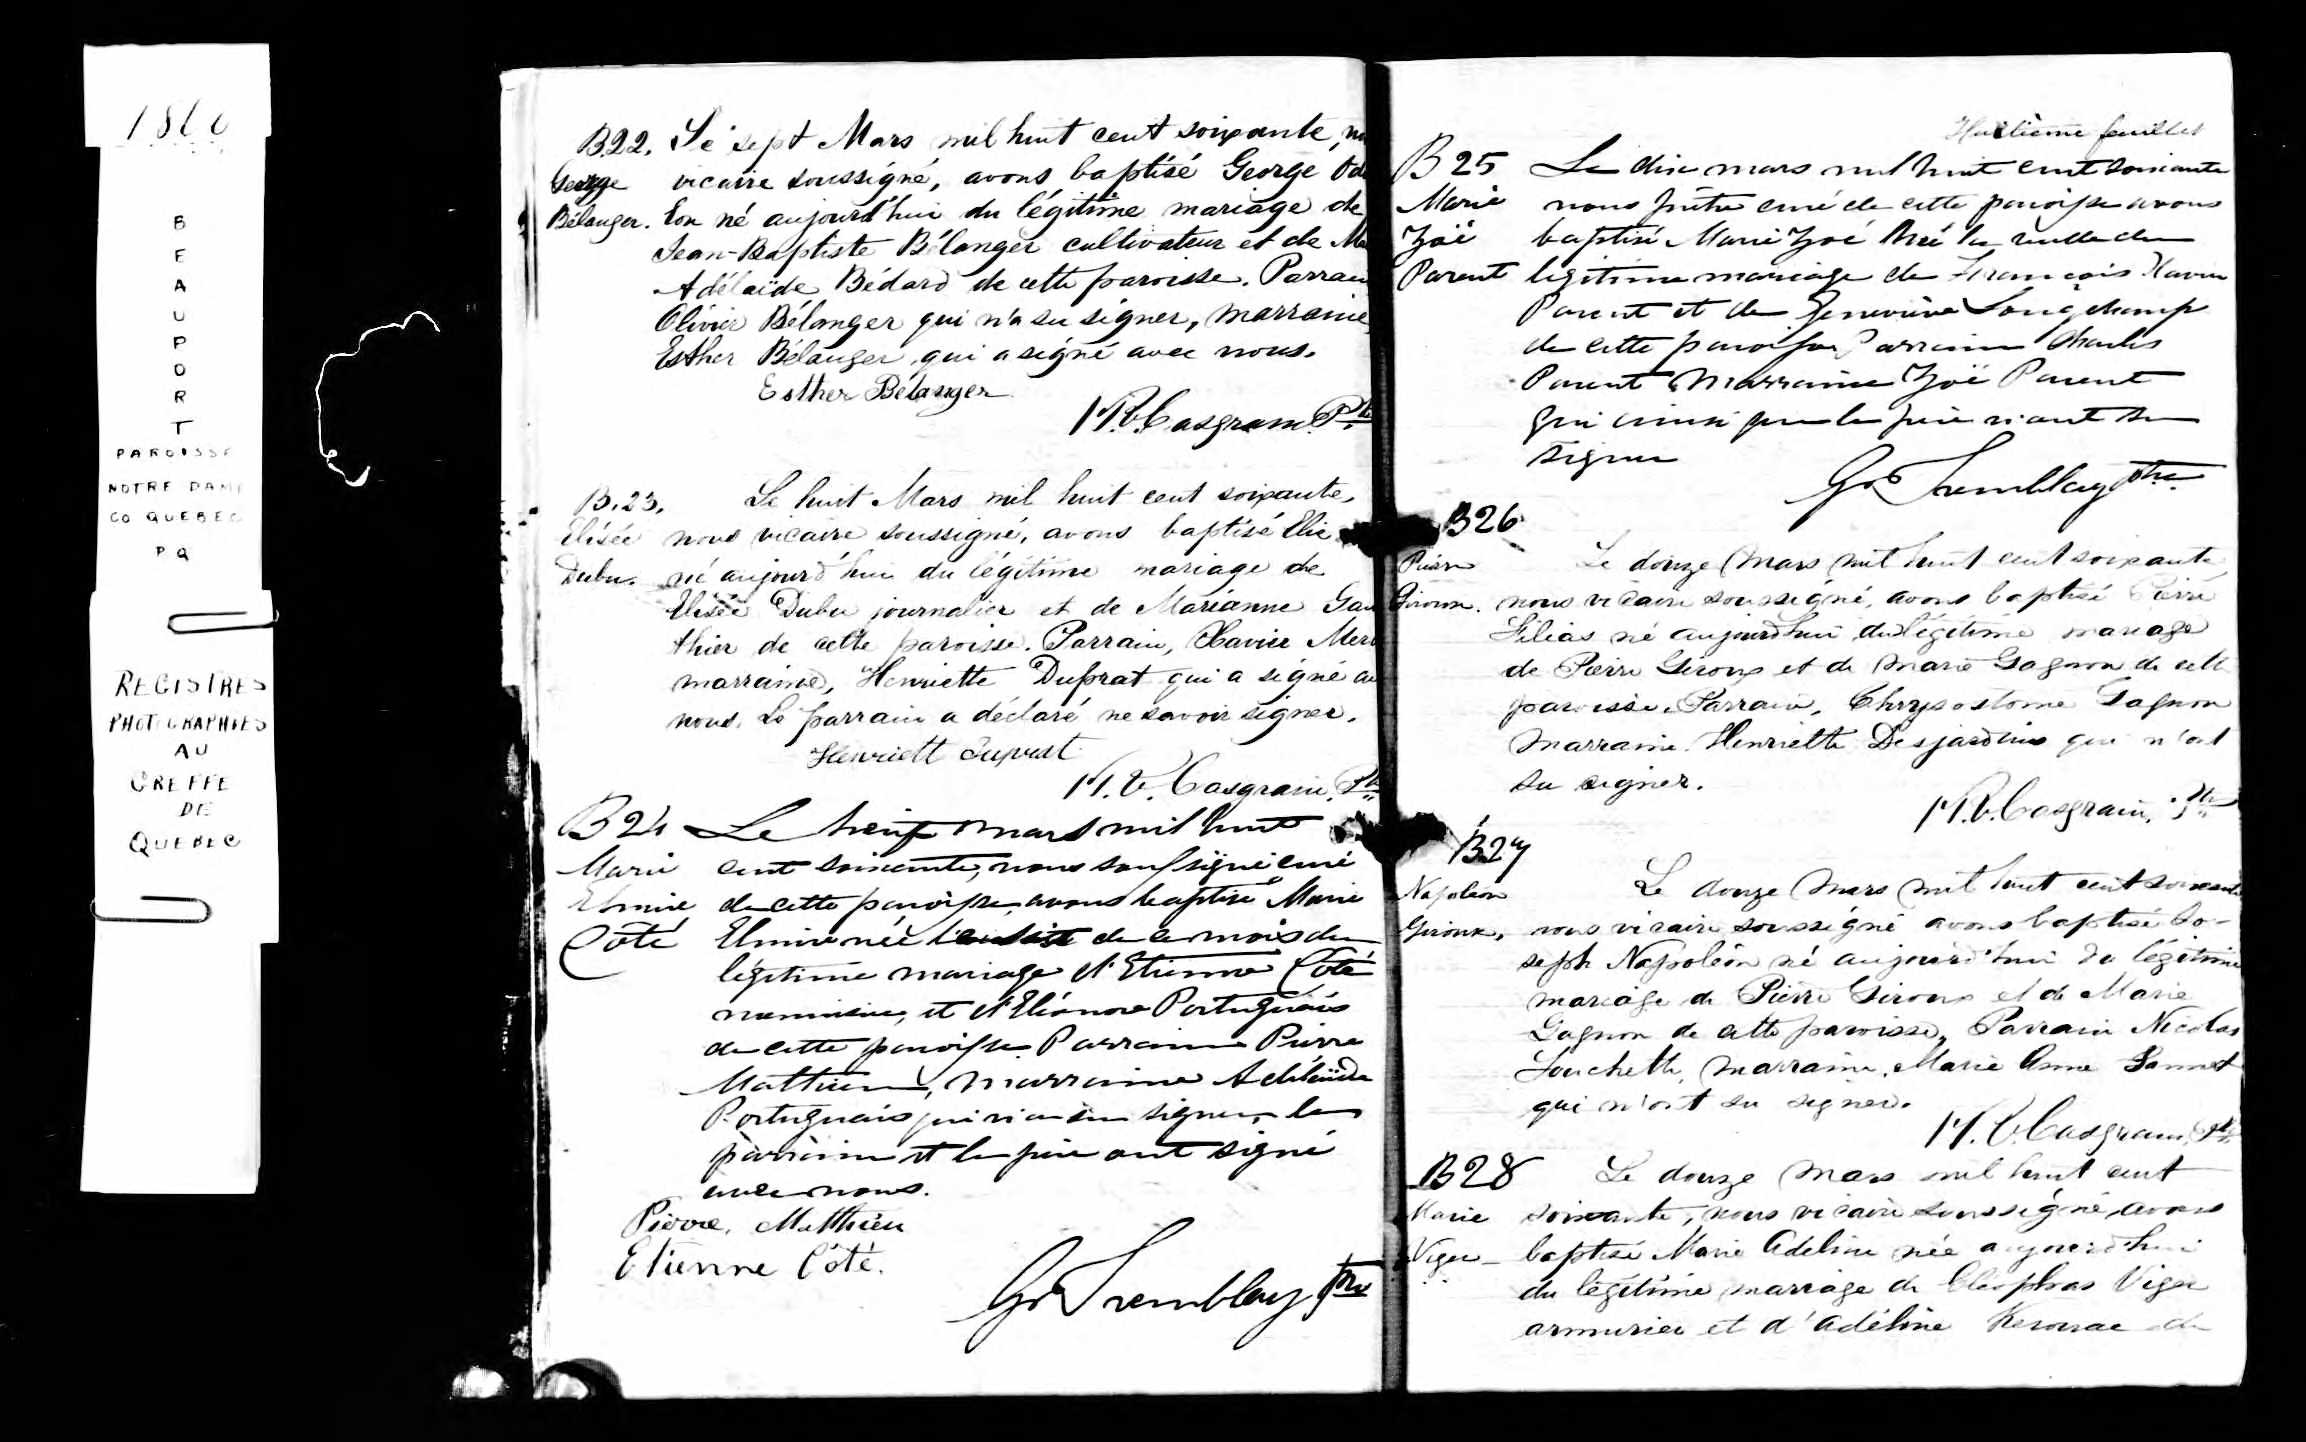 1860
BEAUPORT
PAROISSE
NOTRE DAME
CO QUEBEC
P Q
REGISTRES
PHOTOGRAPHIES
AU
GREFFE
DE
QUEBEC
B22. Le sept Mars mil huit cent soixante,
George vicaire soussigné, avons baptisé George
Bélanger. né aujourd'hui du légitime mariage de
Jean-Baptiste Bélanger cultivateur et de
Adélaïde Bédard de cette paroisse. Parrain
Olivier Bélanger qui n'a su signer, marraine
Esther Bélanger qui a signé avec nous.
Esther Bélanger
Casgrain Ptre
B.23. Le huit Mars mil huit cent soixante,
Elisée nous vicaire soussigné, avons baptisé
Dubu. né aujourd'hui du légitime mariage de
Elisée Dubu journalier et de Marianne Gau
thier de cette paroisse. Parrain, Xavier
marraine, Henriette Duprat qui a signé
nous. Le parrain a déclaré ne savoir signer.
Henriett Duprat
Casgrain, Ptre
B24 Le neuf mars mil huit
Marie cent soixante, nous soussigné curé
Elmire de cette paroisse, avons baptisé Marie
Côté Elmire née de ce mois du
légitime mariage d'Etienne Côté
et d'Eléonore Portuguais
de cette paroisse Parrain Pierre
Matthieu, marraine Adélaïde
Portuguais qui n'a su signer, le
parrain et le père ont signé
avec nous.
Pierre, Matthieu
Etienne Côté.
Tremblay Ptre
Huitième feuillet
B25 Le dix mars mil huit cent soixante
Marie nous prêtre curé de cette paroisse avons
Zoé baptisé Marie Zoé née la veille du
Parent légitime mariage de François Xavier
Parent et de Geneviève Longchamp
de cette paroisse Parrain Charles
Parent Marraine Zoë Parent
qui ainsi que le père n'ont su
signer
Tremblay Ptre
B26
Pierre Le douze Mars mil huit cent soixante
Giroux. nous vicaire soussigné, avons baptisé Pierre
né aujourd'hui du légitime mariage
de Pierre Giroux et de Marie Gagnon de cette
paroisse. Parrain, Chrysostome Gagnon
Marraine. Henriette Desjardins qui n'ont
su signer.
Casgrain, Ptre
B27
Le douze Mars mil huit cent soixante
Napoléon
Giroux, nous vicaire soussigné avons baptisé Jo-
seph Napoléon né aujourd'hui du légitime
mariage de Pierre Giroux et de Marie
Gagnon de cette paroisse, Parrain Nicolas
Touchette, marraine, Marie Anne
qui n'ont su signer.
Casgrain, Ptre
B28 Le douze Mars mil huit cent
Marie soixante, nous vicaire soussigné, avons
Viger baptisé Marie Adeline née aujourd'hui
du légitime mariage de Cléophas Viger
armurier et d'Adéline Kerouac de